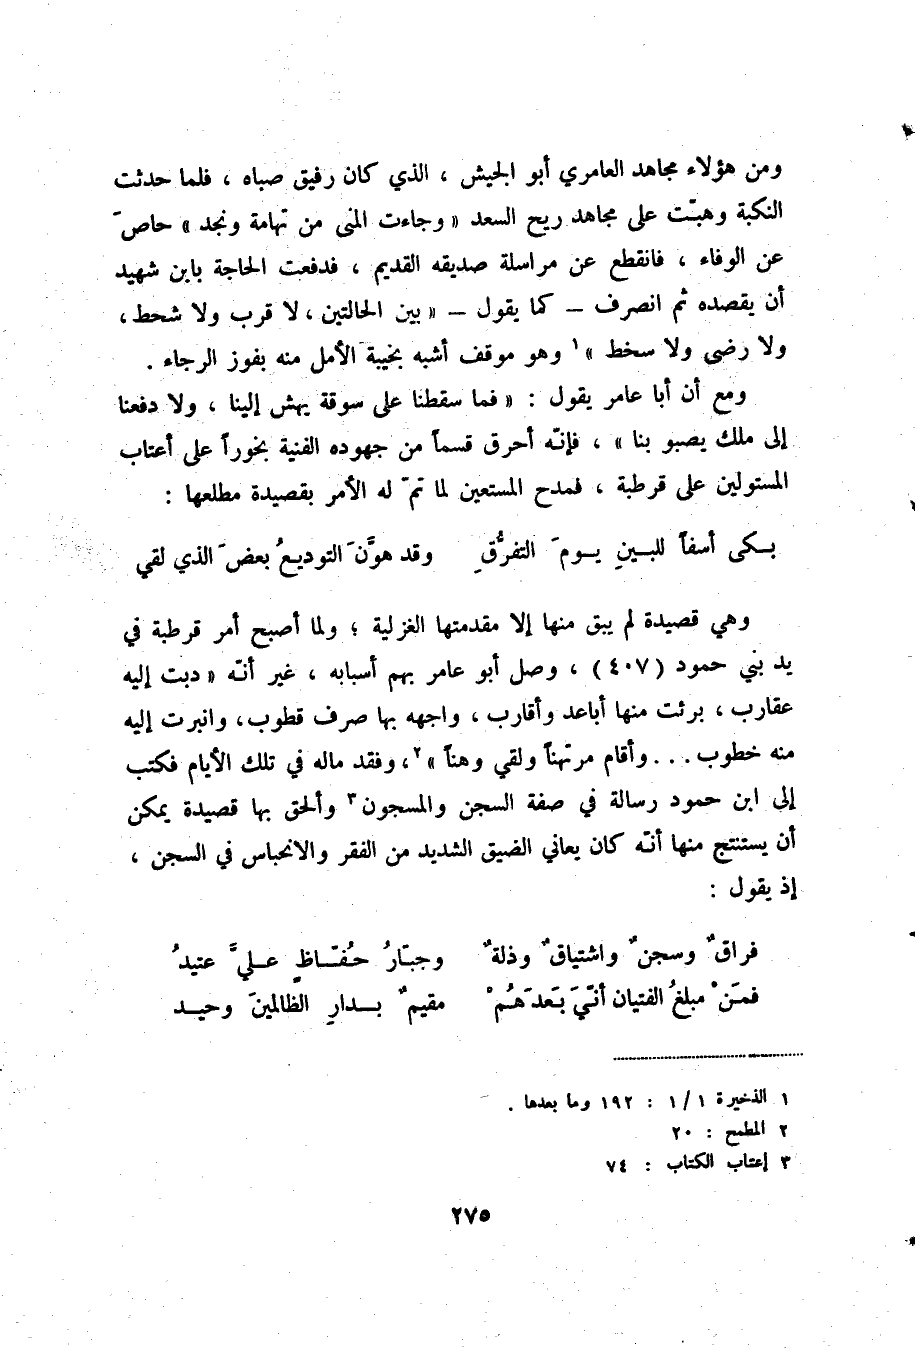 ومن هؤلاء مجاهد العامري أبو الجيش ، الذي كان رفيق صباه ، فلما حدثت
النكبة وهبّت على مجاهد ريح السعد « وجاءت المنى من تهامة ونجد » حاصَ
عن الوفاء ، فانقطع عن مراسلة صديقه القديم ، فدفعت الحاجة بابن شهيد
أن يقصده ثم انصرف – كما يقول – « بين الحالتين ، لا قرب ولا شحط ،
ولا رضى ولا سخط »١ وهو موقف أشبه بخيبة الأمل منه بفوز الرجاء .
ومع أن أبا عامر يقول : « فما سقطنا على سوقة يهش إلينا ، ولا دفعنا
إلى ملك يصبو بنا » ، فإنّه أحرق قسماً من جهوده الفنية بخوراً على أعتاب
المستولين على قرطبة ، فمدح المستعين لما تمّ له الأمر بقصيدة مطلعها :
بـكى أسفاً للبـينِ يـومَ التفرُّقِ وقد هوَّنَ التوديعُ بعضَ الذي لقي
وهي قصيدة لم يبق منها إلا مقدمتها الغزلية ؛ ولما أصبح أمر قرطبة في
يد بني حمود (٤٠٧) ، وصل أبو عامر بهم أسبابه ، غير أنّه « دبت إليه
عقارب ، برئت منها أباعد وأقارب ، واجهه بها صرف قطوب ، وانبرت إليه
منه خطوب . . . وأقام مرتهناً ولقي وهناً »٢ ، وفقد ماله في تلك الأيام فكتب
إلى ابن حمود رسالة في صفة السجن والمسجون٣ وألحق بها قصيدة يمكن
أن يستنتج منها أنّه كان يعاني الضيق الشديد من الفقر والانحباس في السجن ،
إذ يقول :
فراقٌ وسجنٌ واشتياقٌ وذلةٌ وجبّارُ حُفّـاظٍ عـليَّ عتيدُ
فمَنْ مبلغُ الفتيان أنّيَ بَعدَهُمْ مقيمٌ بـدارِ الظالمينَ وحيـد
١ الذخيرة ١/١ : ١٩٢ وما بعدها .
٢ المطمح : ٢٠
٣ إعتاب الكتاب : ٧٤
٢٧٥